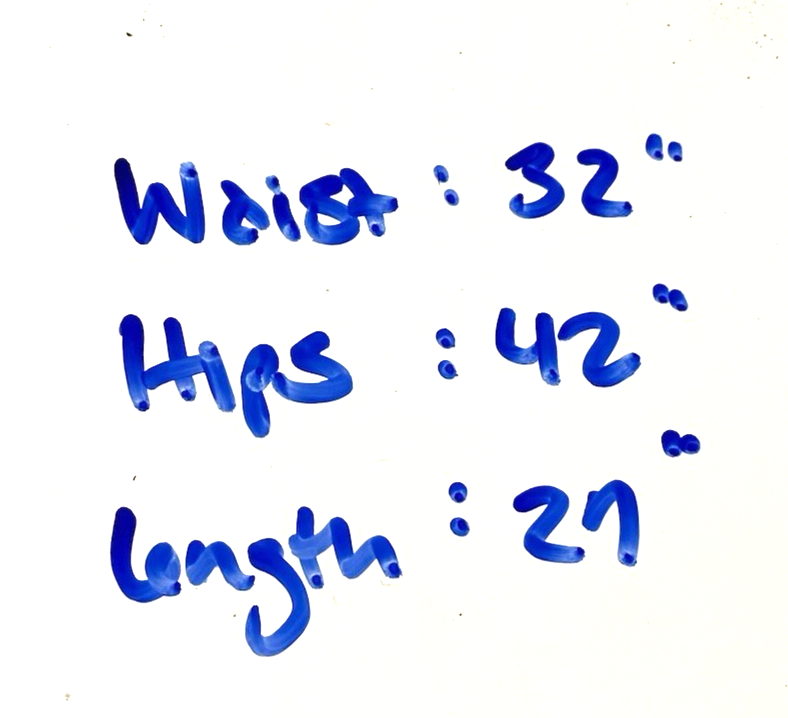 Waist : 32"
Hips : 42"
Length : 27"